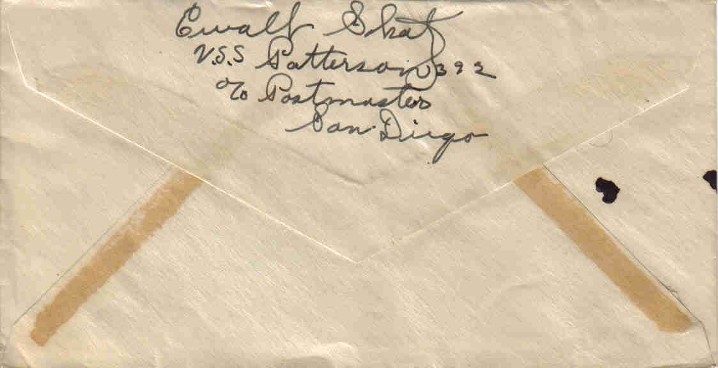 Ewalt Skaf
U.S.S Patterson 392
c/o Postmaster
San Diego